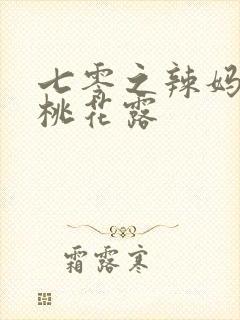 七零之辣妈
桃花露
霜露寒